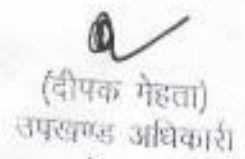 (दीपक मेहता)
उपखण्ड अधिकारी